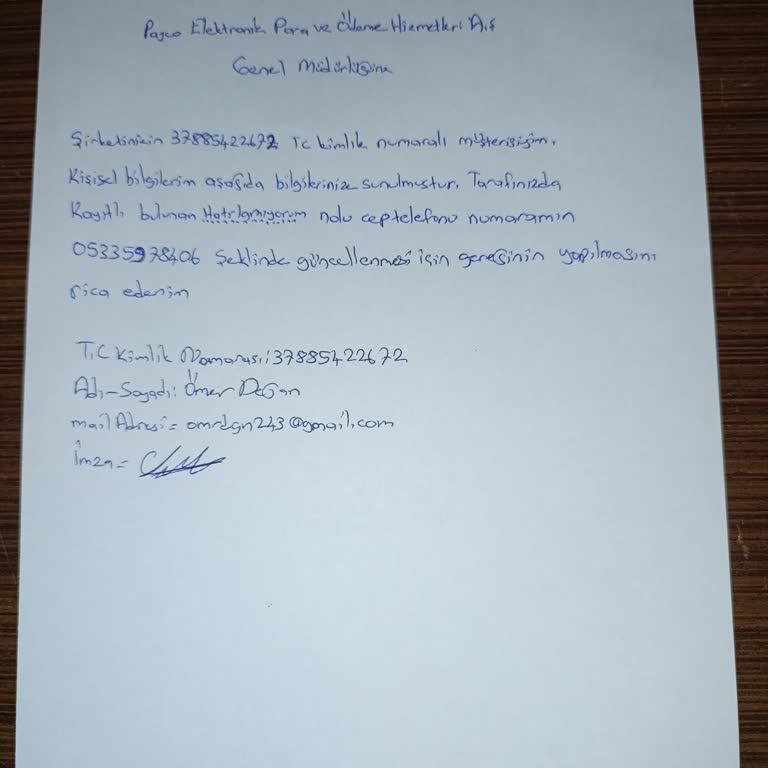 Payco Elektronik Para ve Ödeme Hizmetleri A.Ş
Genel Müdürlüğüne
Şirketinizin 37885422672 Tc kimlik numaralı müşterisiyim.
Kişisel bilgilerim aşağıda bilgilerinize sunulmuştur. Tarafınızda
Kayıtlı bulunan Hatırlamıyorum nolu cep telefonu numaramın
05335978406 Şeklinde güncellenmesi için gereğinin yapılmasını
rica ederim
T.C Kimlik Numarası: 37885422672
Adı-Soyadı: Ömer Doğan
mail Adresi = omrdgn243@gmail.com
İmza =